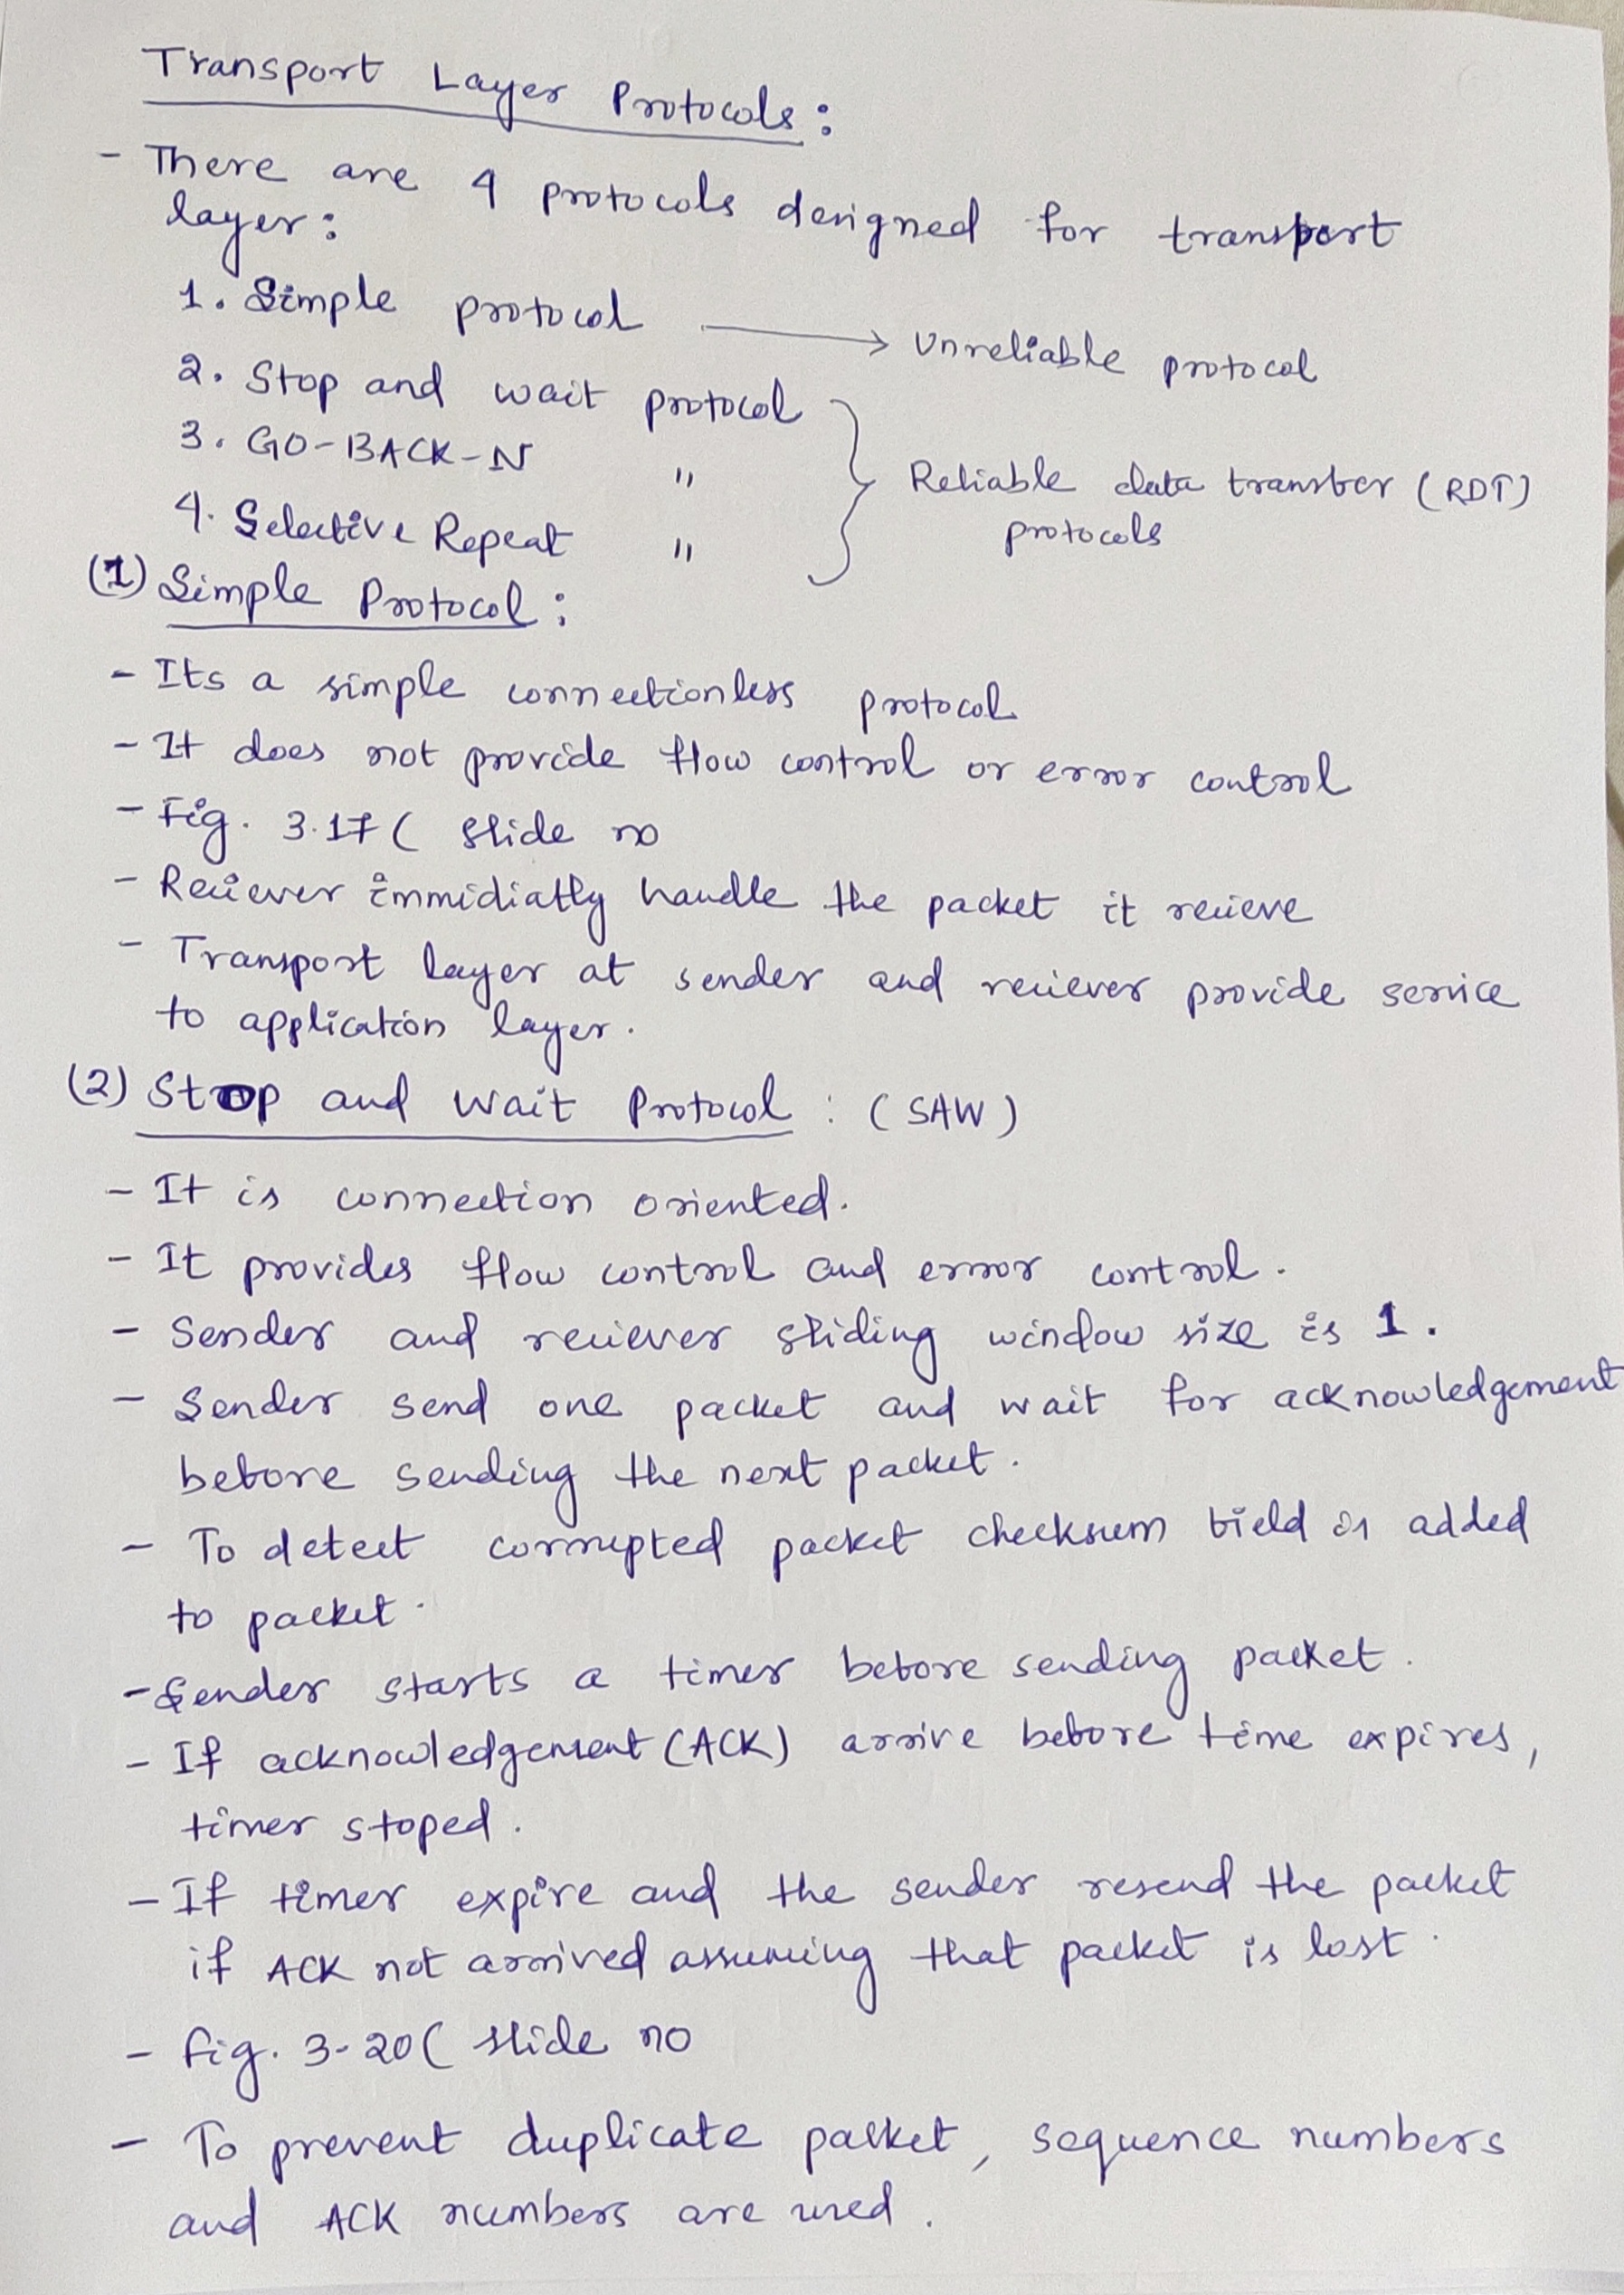 Transport Layer Protocols :
- There are 4 protocols designed for transport
layer :
1. Simple protocol → Unreliable protocol
2. Stop and wait protocol
3. GO-BACK-N "
4. Selective Repeat "
Reliable data transfer (RDT)
protocols
(1) Simple Protocol :
- Its a simple connectionless protocol
- It does not provide flow control or error control
- Fig. 3.17 ( slide no
- Reciever immidiatly handle the packet it recieve
- Transport layer at sender and reciever provide service
to application layer.
(2) Stop and Wait Protocol : (SAW)
- It is connection oriented.
- It provides flow control and error control.
- Sender and reciever sliding window size is 1.
- Sender send one packet and wait for acknowledgement
before sending the next packet.
- To detect corrupted packet checksum field is added
to packet.
- Sender starts a timer before sending packet.
- If acknowledgement (ACK) arrive before time expires,
timer stoped.
- If timer expire and the sender resend the packet
if ACK not arrived assuming that packet is lost.
- fig. 3-20 ( slide no
- To prevent duplicate packet, sequence numbers
and ACK numbers are used.